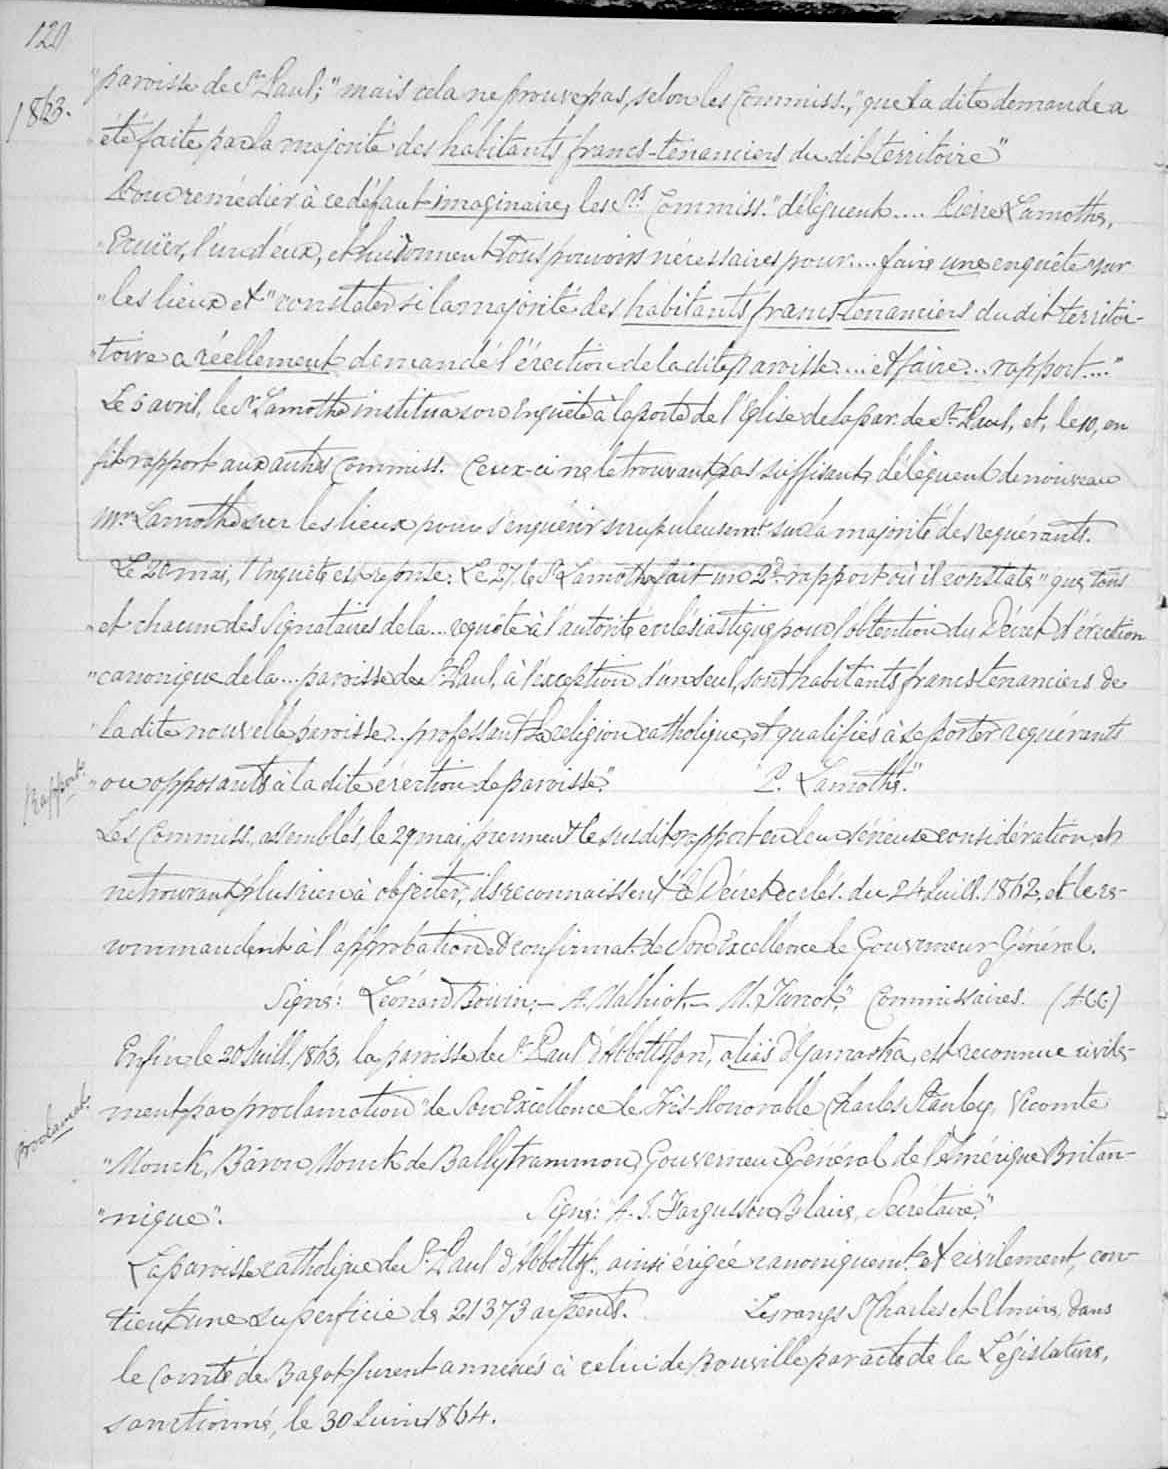 120
1863.
"paroisse de St Paul;" mais cela ne prouve pas, selon les Commiss., "que la dite demande a
"été faite par la majorité des habitants francs-tenanciers du dit territoire"
Pour remédier à ce défaut imaginaire, les Srs Commiss. "délèguent.... Pierre Lamothe,
"Ecuïer, l'un d'eux, et lui donnent tous pouvoirs nécessaires pour.... faire une enquête sur
"les lieux et "constater si la majorité des habitants francs-tenanciers du dit territoi-
"toire a réellement demandé l'érection de la dite paroisse.... et faire... rapport...."
Le 5 avril, le Sr Lamothe institua son Enquête à la porte de l'Eglise de la par. de St Paul, et, le 10, en
fit rapport aux autres Commiss. Ceux-ci ne le trouvant pas suffisant, délèguent de nouveau
Mr Lamothe sur les lieux pour s'enquérir scrupuleusemt sur la majorité des requérants.
Le 20 mai, l'Enquête est reprise. Le 27, le Sr Lamothe fait un 2d rapport où il constate "que tous
"et chacun des Signataires de la... requête à l'autorité ecclésiastique pour l'obtention du Décret d'érection
"canonique de la... paroisse de St Paul, à l'exception d'un seul, sont habitants francs tenanciers de
"la dite nouvelle paroisse.. professant la religion catholique, et qualifiés à se porter requérants
"ou opposants à la dite érection de paroisse." "P. Lamothe."
Rapport.
Les Commiss., assemblés, le 29 mai, prennent le susdit rapport en leur sérieuse considération, et
ne trouvant plus rien à objecter, ils reconnaissent le Décret ecclés. du 24 Juill. 1862, et le re-
commandent à l'approbation et confirmat. de Son Excellence le Gouverneur Général.
Signé: Léonard Boivin,- A. Malhiot- M. Turcot," Commissaires.
Enfin, le 20 Juill. 1863, la paroisse de St Paul d'Abbottsford, alias d'Yamaska, est reconnue civile-
ment par proclamation "de Son Excellence le Très-Honorable Charles Stanley, Vicomte
Proclamat.
"Monck, Baron Monck de Ballytrammon, Gouverneur Général de l'Amérique Britan-
"nique". Signé: "A. J. Fargusson Blair, Secrétaire."
La paroisse catholique de St Paul d'Abbottsf., ainsi érigée canoniquemt et civilement, con-
tient une superficie de 21373 arpents. Les rangs St Charles et Elmire, dans
le Comté de Bagot, furent annexés à celui de Rouville par acte de la Législature,
sanctionné, le 30 Juin 1864.